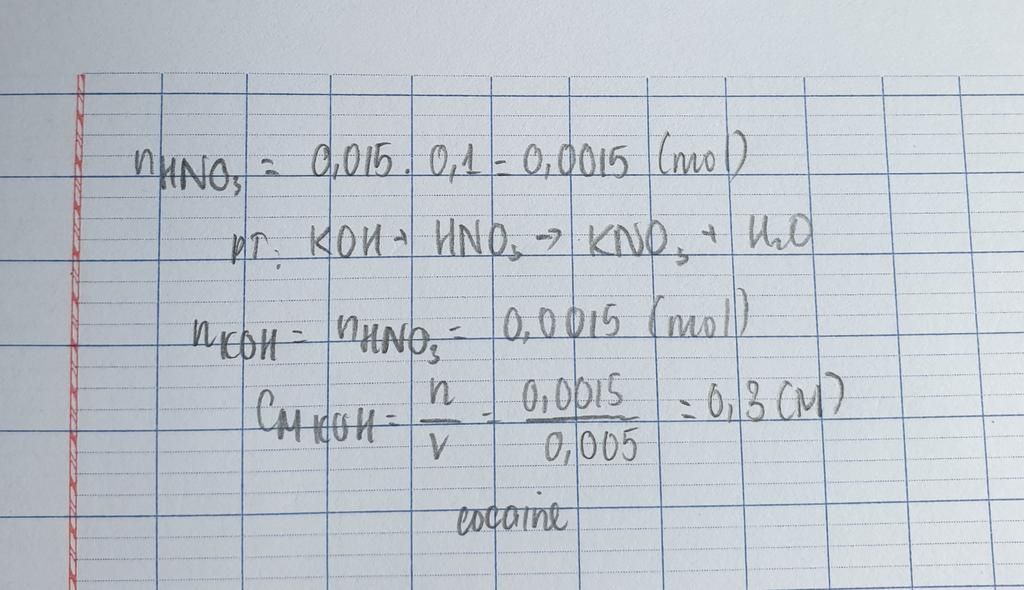 nHNO₃ = 0,015. 0,1 = 0,0015 (mol)
PT: KOH + HNO₃ → KNO₃ + H₂O
nKOH = nHNO₃ = 0,0015 (mol)
CM KOH = n/v = 0,0015/0,005 = 0,3 (M)
cocaine